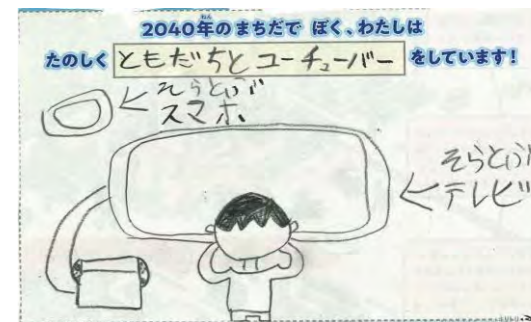 2040年のまちだで ぼく、わたしは
たのしく ともだちとユーチューバー をしています!
そらとぶ
スマホ
そらとぶ
テレビ